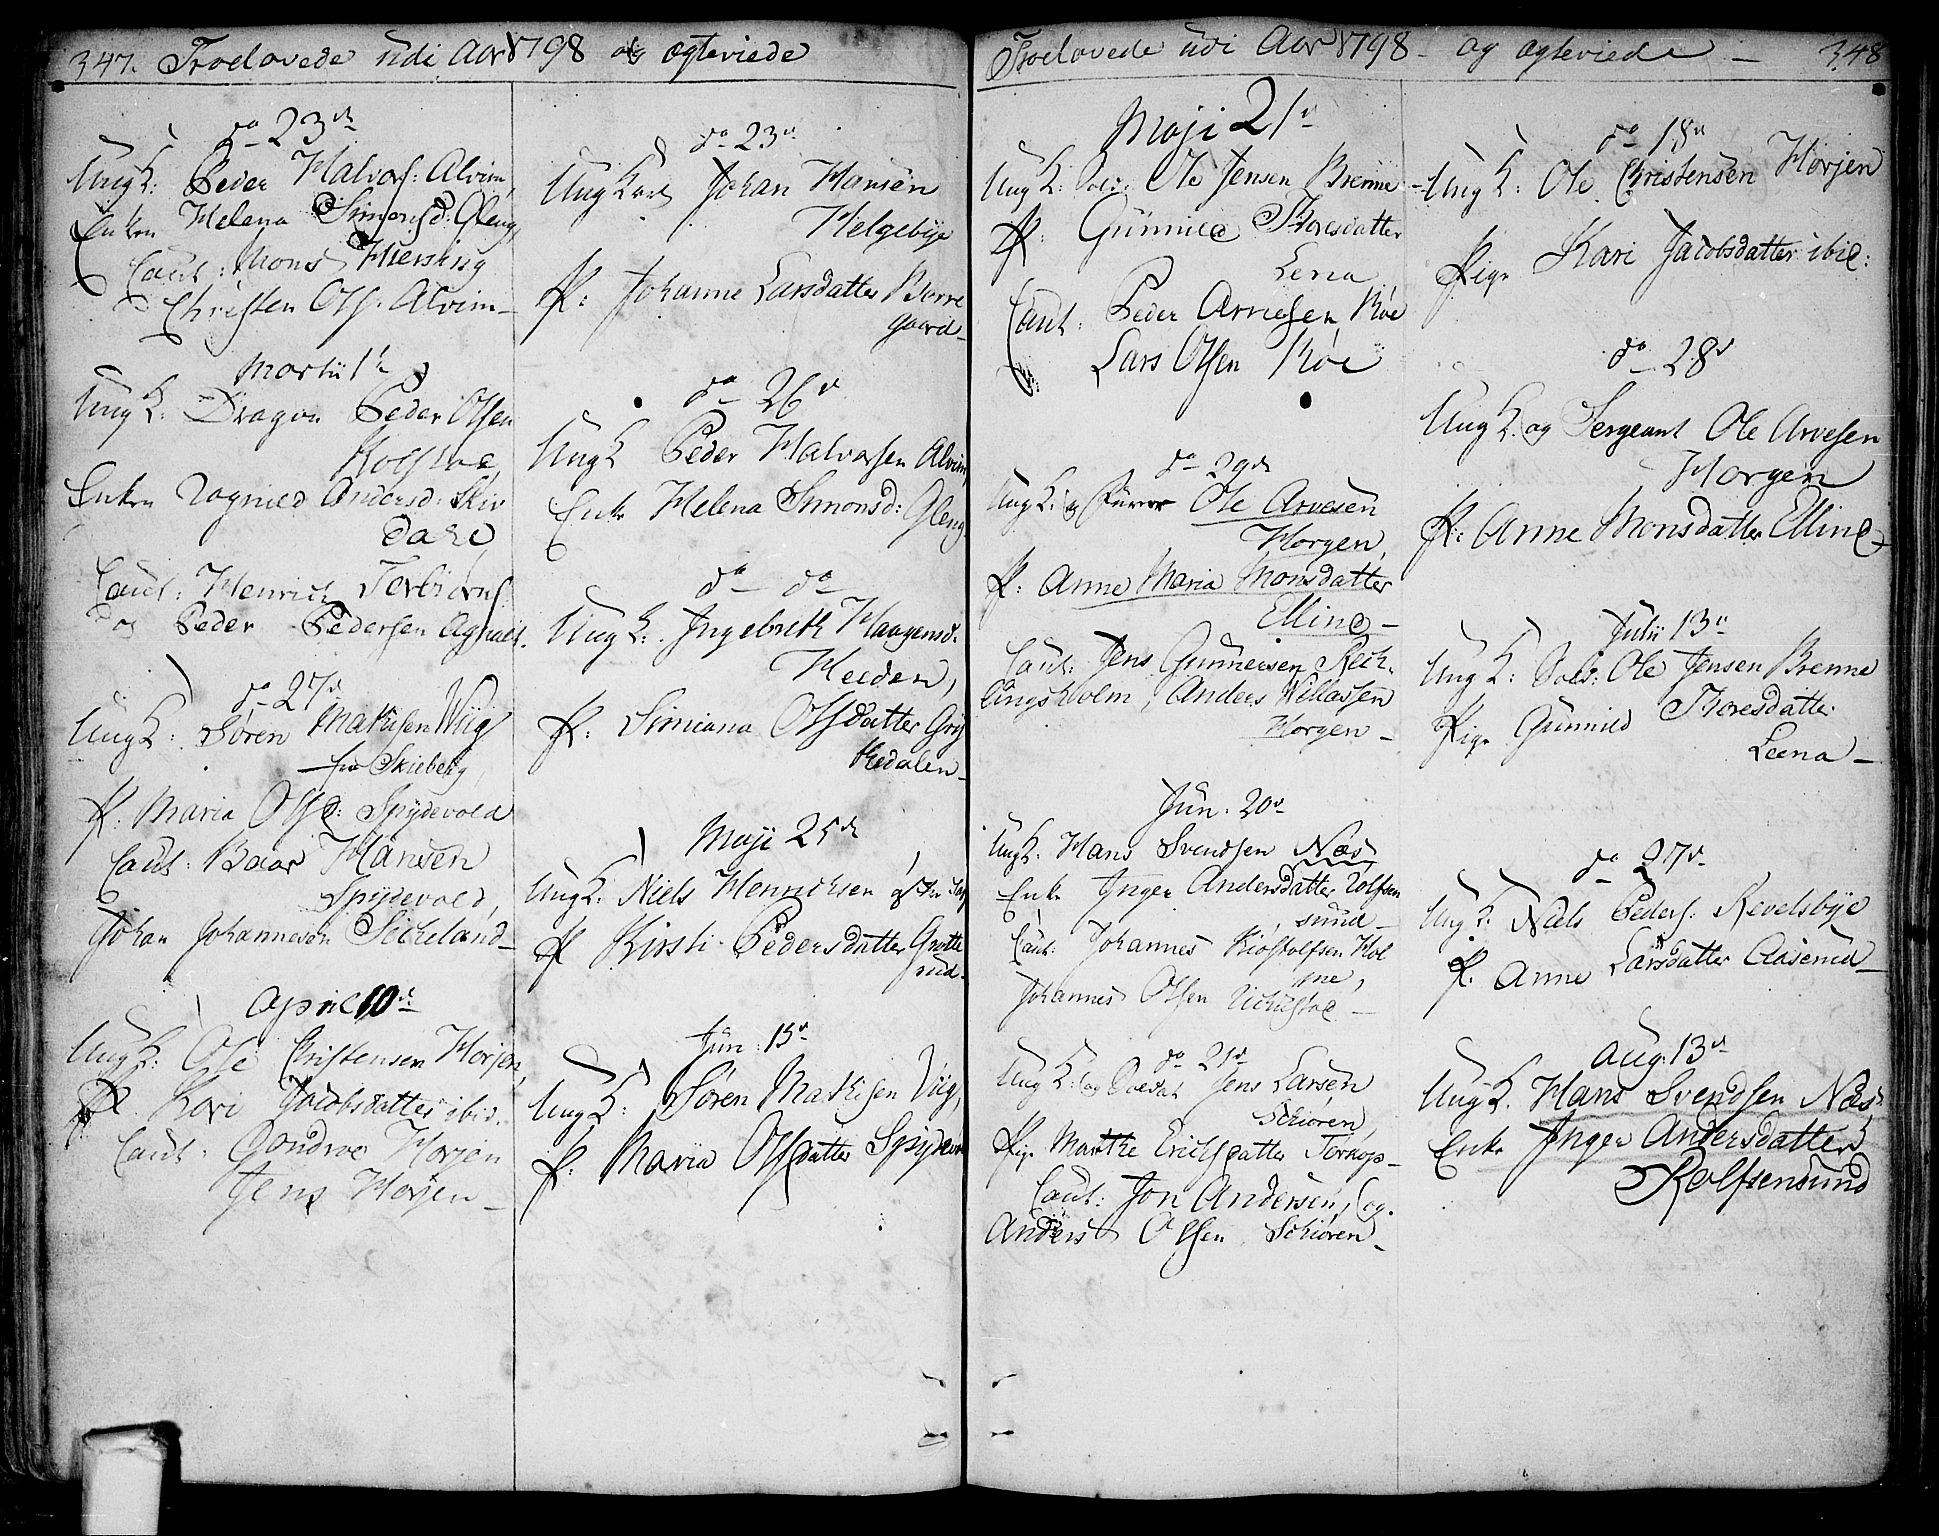 347. Troelovede udi Aar 1798 og ægteviede
do 23de
Ung K: Peder Halvors: Alvim,
Enken Helena Simonsd: Gleng,
Caut: Mons Hiersing
Christen Ols: Alvim
Martii 1te
Ung K: Dragon Peder Olsen
Kolstad,
Enken Dagnied Andersd: Skiv
dahl
Caut: Henrich Torbiørns:
og Peder Pedersen Agnals.
do 27de
Ung K: Søren Mathisen Viig
fra Skieberg,
P. Maria Olsd: Spydevold
Caut: Baar Hansen
Spydevold,
Johan Johannesen Sickeland
April 10de
Ung K: Ole Christensen Horjen,
P. Kari Jacobsdatter ibid.
Caut: Gondroe Horjen
Jens Horjen
do 23de
Ung Karl Johan Hansen
Helgebye
P: Johanne Larsdatter Borre
gaard
do 26de
Ung K Peder Halvorsen Alvim,
Enke Helena Simonsd: Gleng
do do
Ung K: Ingebreth Haagensd:
Heeden,
P: Simiana Olsdatter Gry
tkedalen
Maji 25de
Ung K: Niels Henrichsen
P Kirsti Pedersdatter Grotte
rud.
Jun: 15de
Ung K: Søren Mathisen Viig,
P: Maria Olsdatter Spydevold
Troelovede udi Aar 1798 og ægteviede 348
Maji 21de
Ung K: Sold: Ole Jensen Brenne
P: Gunnild Thoresdatter
Lena
Caut: Peder Arnesen Roe
Lars Olsen Roe
do 29de
Ung K: og Ole Arvesen
Horgen,
P: Anne Maria Monsdatter
Elline
Caut: Jens Gunnersen Kech-
lingsholm, Anders Willassen
Horgen
Jun: 20de
Ung K: Hans Svendsen Næs
Enke Inger Andersdatter Rolfsen
sund
Caut: Johannes Kiøstolfsen Hol
me,
Johannes Olsen Vichstad
do 21de
Ung K: og Soldat Jens Larsen
Schiøren,
Pige Marthe Erichsdatter Torkop
Caut: Jon Andersen, og.
Anders Olsen Schiøren
do 18de
Ung K: Ole Christensen Horjen
Pige Kari Jacobsdatter ibid:
do 28de
Ung K. og Sergeant Ole Arvesen
Horgen
P: Anne Monsdatter Elline
Julii 13de
Ung K: Sold: Ole Jensen Brenne
Pige Gunnild Thoresdatter
Leena
do 27de
Ung K: Niels Peders: Revelsbye
P. Anne Larsdatter Aaserud
Aug: 13de
Ung K. Hans Svendsen Næs
Enke Inger Andersdatter
Rolfsensund